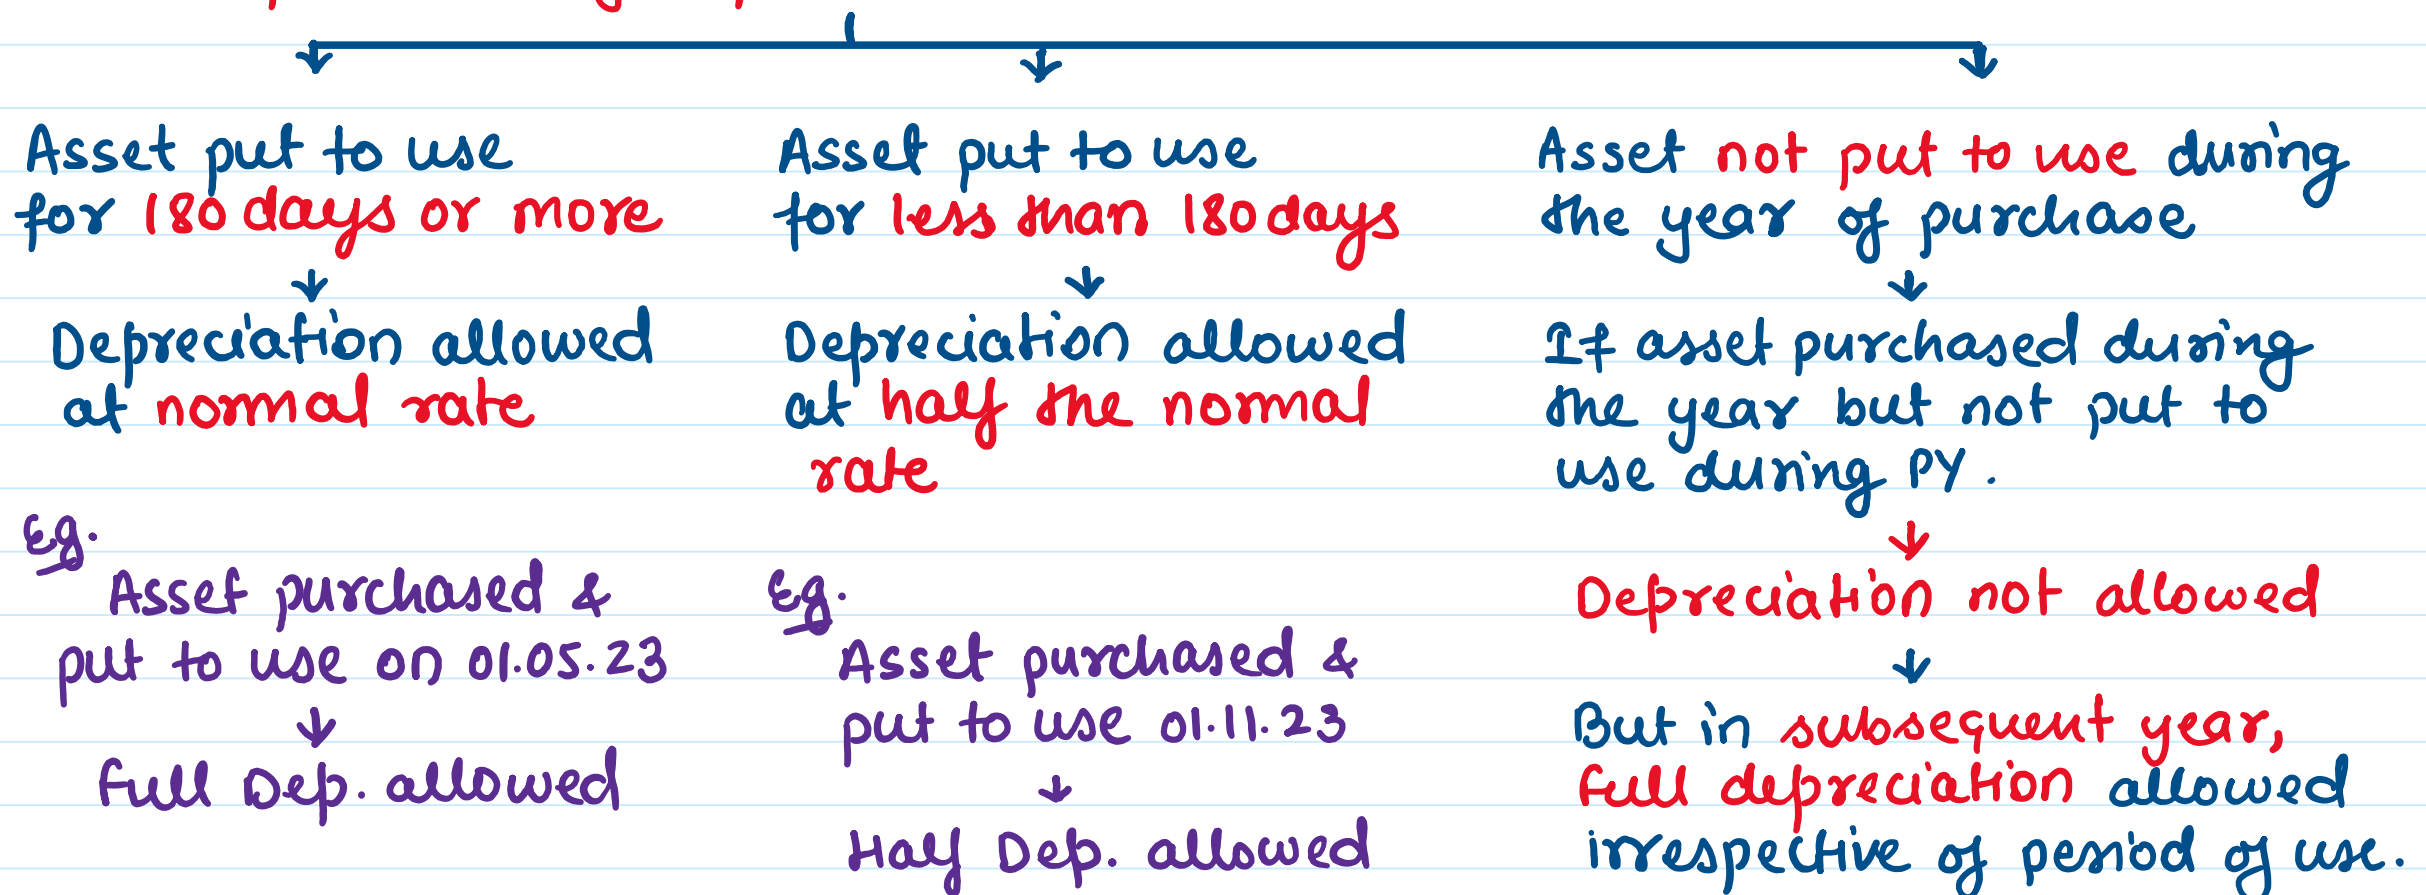 Asset put to use
for 180 days or more
Depreciation allowed
at normal rate
Eg.
Asset purchased &
put to use on 01.05.23
Full Dep. allowed
Asset put to use
for less than 180 days
Depreciation allowed
at half the normal
rate
Eg.
Asset purchased &
put to use 01.11.23
Half Dep. allowed
Asset not put to use during
the year of purchase
If asset purchased during
the year but not put to
use during PY.
Depreciation not allowed
But in subsequent year,
full depreciation allowed
irrespective of period of use.